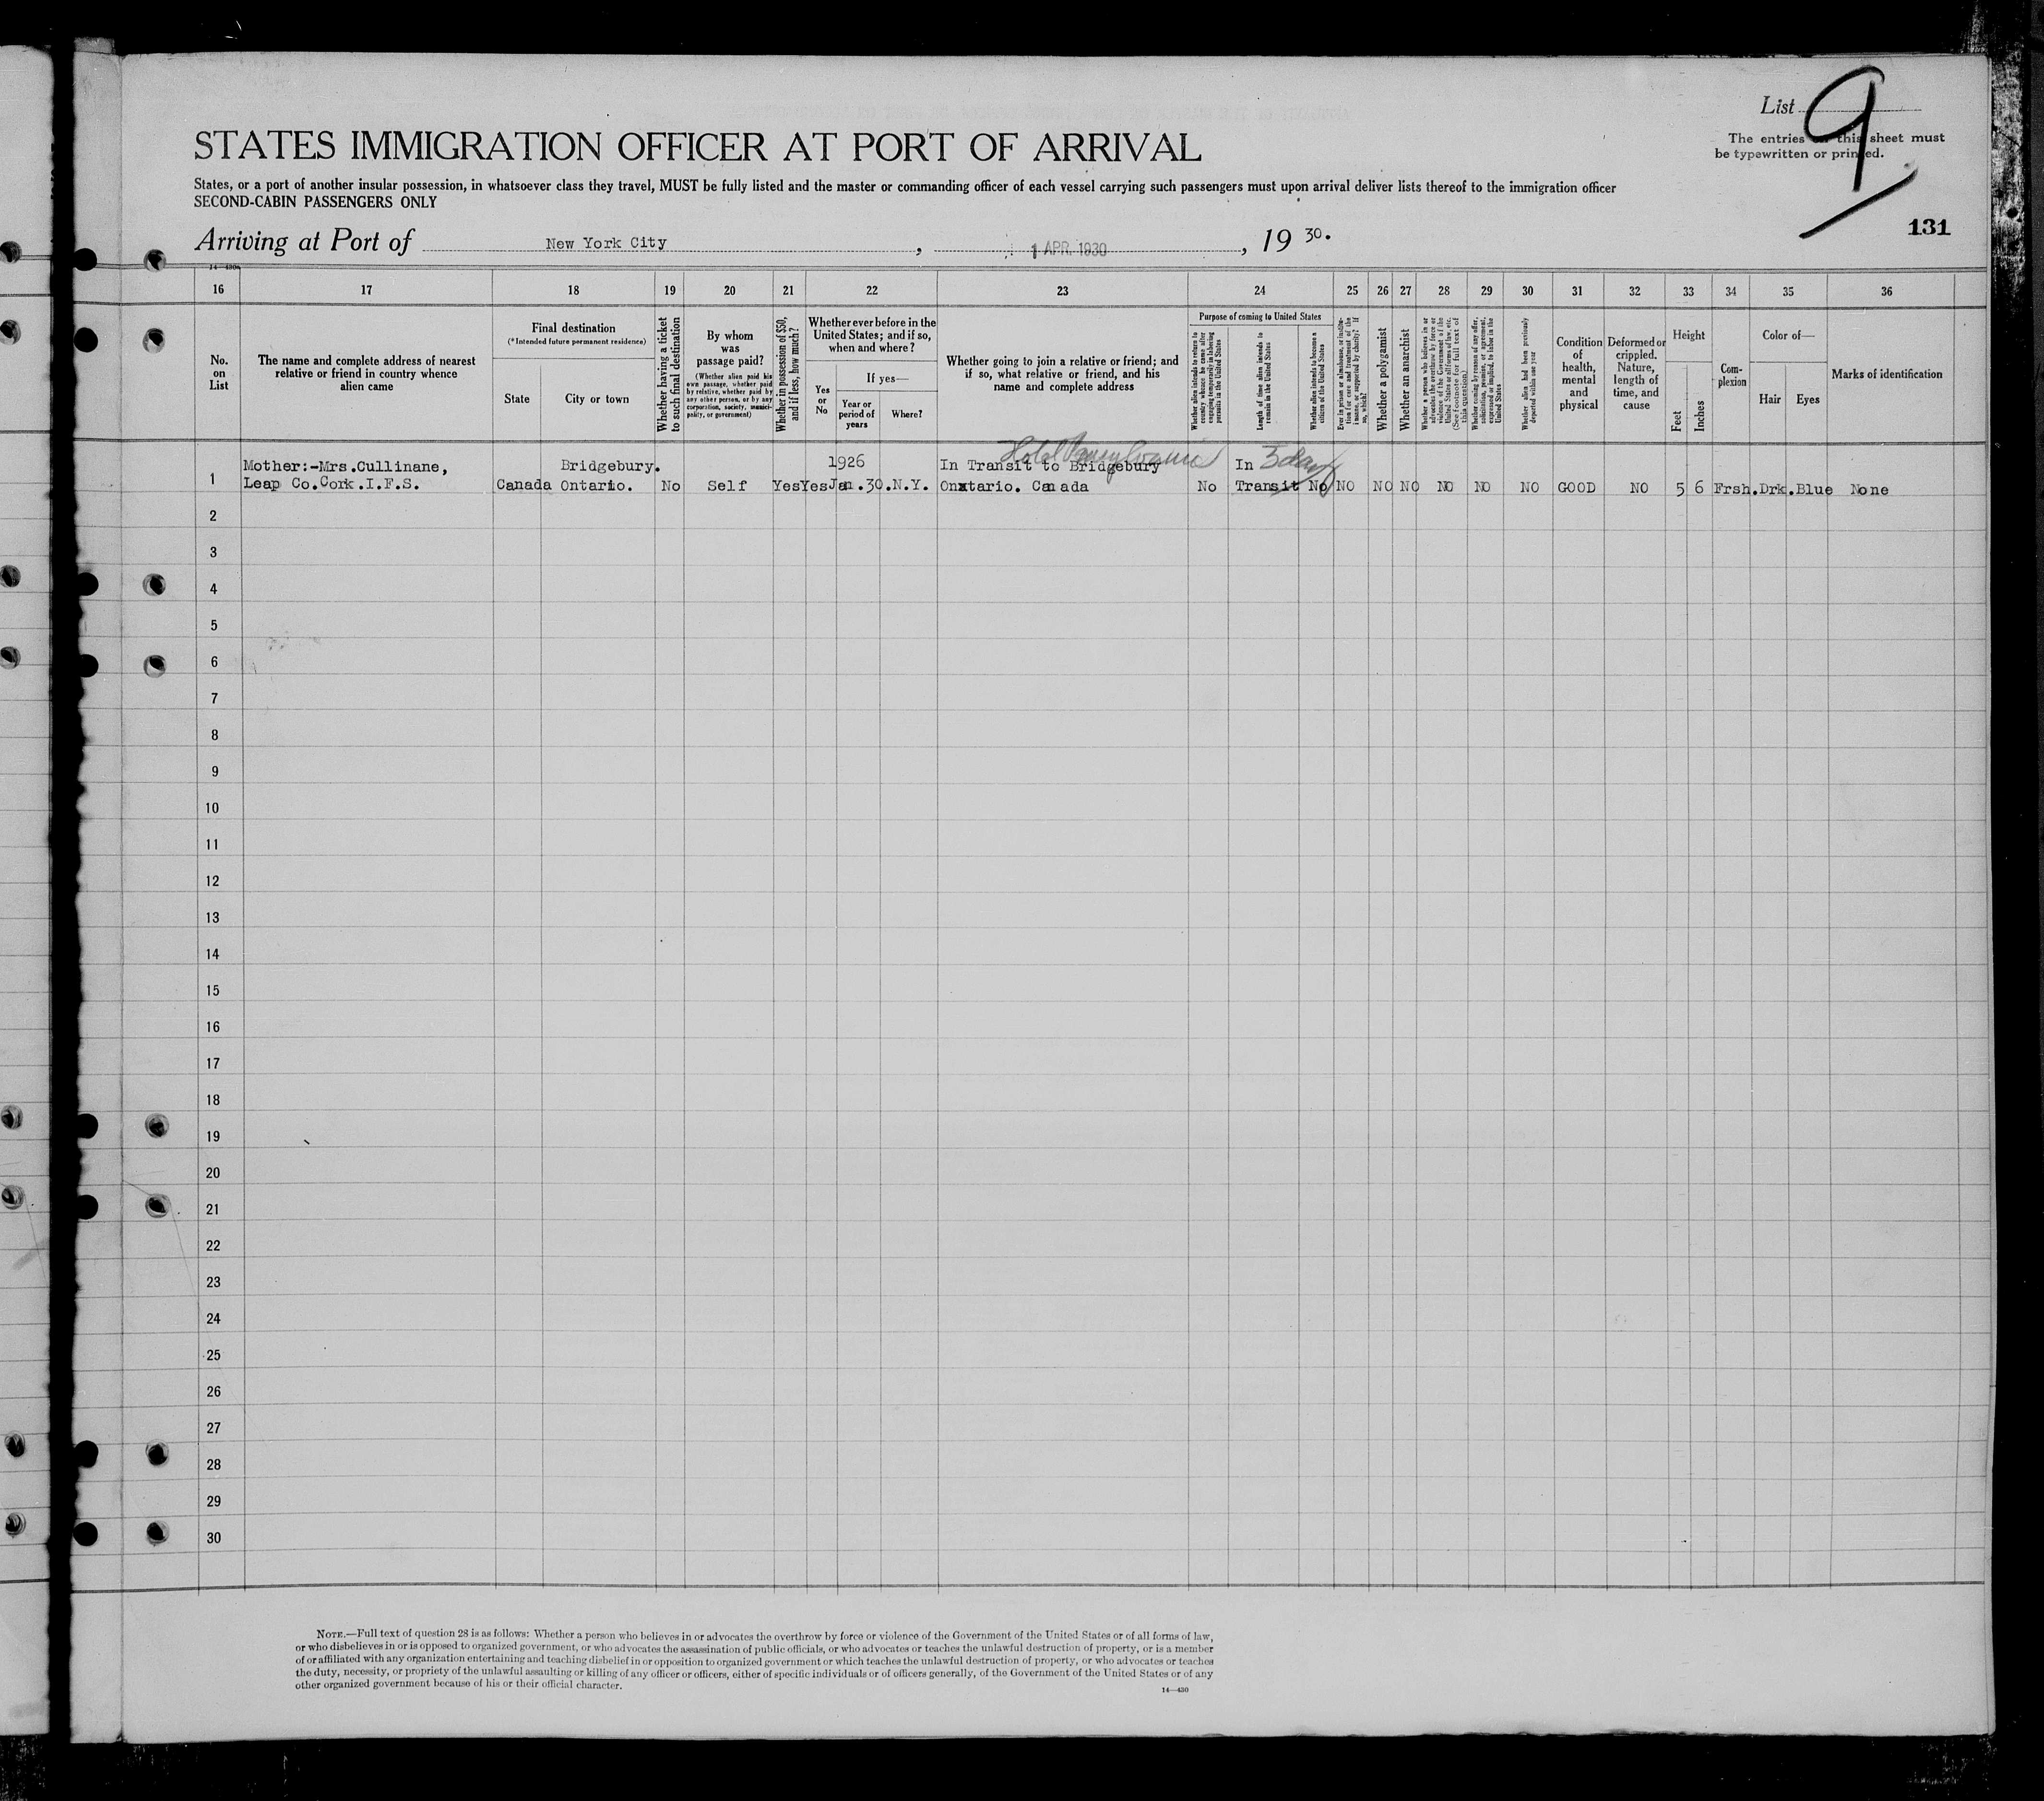 List 9
The entries on this sheet must
be typewritten or printed.
STATES IMMIGRATION OFFICER AT PORT OF ARRIVAL
States, or a port of another insular possession, in whatsoever class they travel, MUST be fully listed and the master or commanding officer of each vessel carrying such passengers must upon arrival deliver lists thereof to the immigration officer
SECOND-CABIN PASSENGERS ONLY
131
Arriving at Port of New York City, 1 APR. 1930, 19 30.
14—430
16 17 18 19 20 21 22 23 24 25 26 27 28 29 30 31 32 33 34 35 36
No.
on
List
The name and complete address of nearest
relative or friend in country whence
alien came
Final destination
(*Intended future permanent residence)
State
City or town
Whether having a ticket
to such final destination
By whom
was
passage paid?
(Whether alien paid his
own passage, whether paid
by relative, whether paid by
any other person, or by any
corporation, society, munici-
pality, or government)
Whether in possession of $50,
and if less, how much?
Whether ever before in the
United States; and if so,
when and where?
Yes
or
No
If yes—
Year or
period of
years
Where?
Whether going to join a relative or friend; and
if so, what relative or friend, and his
name and complete address
Purpose of coming to United States
Whether alien intends to return to
country whence he came after
engaging temporarily in laboring
pursuits in the United States
Length of time alien intends to
remain in the United States
Whether alien intends to become a
citizen of the United States
Ever in prison or almshouse, or institu-
tion for care and treatment of the
insane, or supported by charity? If
so, which?
Whether a polygamist
Whether an anarchist
Whether a person who believes in or
advocates the overthrow by force or
violence of the Government of the
United States or all forms of law, etc.
(See footnote for full text of
this question)
Whether coming by reason of any offer,
solicitation, promise, or agreement,
expressed or implied, to labor in the
United States
Whether alien had been previously
deported within one year
Condition
of
health,
mental
and
physical
Deformed or
crippled.
Nature,
length of
time, and
cause
Height
Feet
Inches
Com-
plexion
Color of—
Hair
Eyes
Marks of identification
Hotel Pennsylvania
Mother:-Mrs.Cullinane, Bridgebury. 1926 In Transit to Bridgebury In 3 days
1 Leap Co.Cork.I.F.S. Canada Ontario. No Self Yes Yes Jan.30.N.Y. Onxtario. Canada No Transit No NO NO NO NO NO NO GOOD NO 5 6 Frsh.Drk.Blue None
2
3
4
5
6
7
8
9
10
11
12
13
14
15
16
17
18
19
20
21
22
23
24
25
26
27
28
29
30
NOTE.—Full text of question 28 is as follows: Whether a person who believes in or advocates the overthrow by force or violence of the Government of the United States or of all forms of law,
or who disbelieves in or is opposed to organized government, or who advocates the assassination of public officials, or who advocates or teaches the unlawful destruction of property, or is a member
of or affiliated with any organization entertaining and teaching disbelief in or opposition to organized government or which teaches the unlawful destruction of property, or who advocates or teaches
the duty, necessity, or propriety of the unlawful assaulting or killing of any officer or officers, either of specific individuals or of officers generally, of the Government of the United States or of any
other organized government because of his or their official character.
14—430